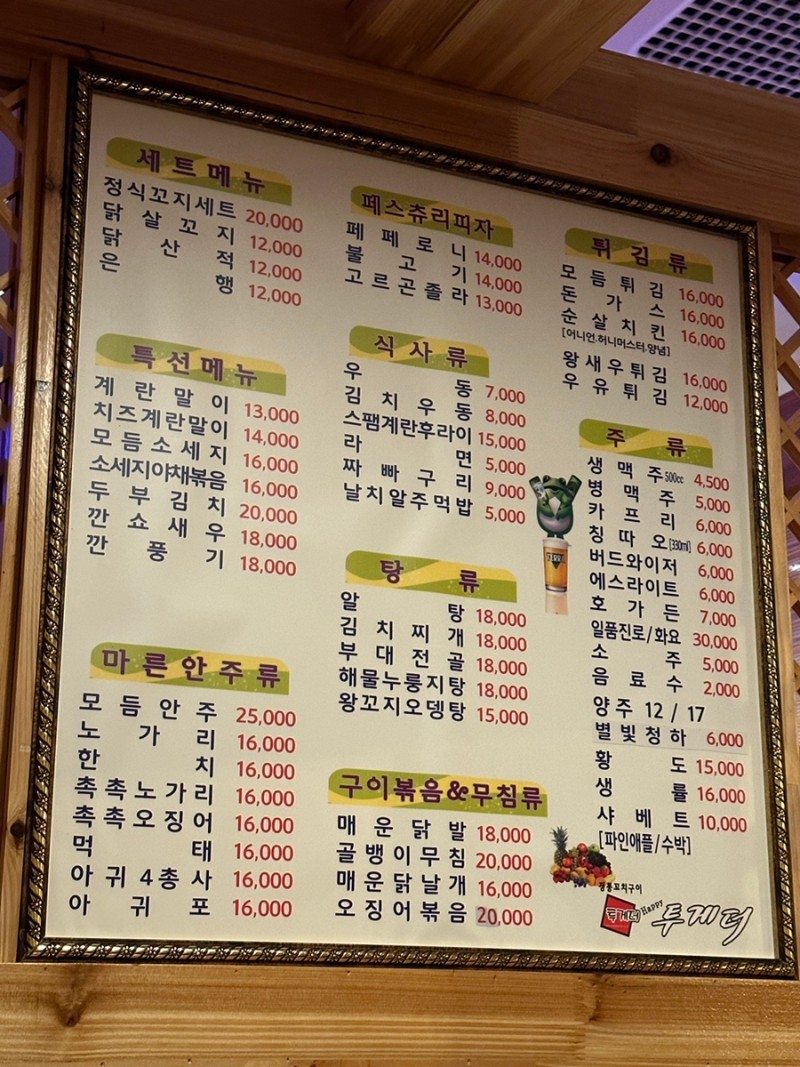 세트메뉴
정식꼬지세트 20,000
닭살꼬지 12,000
닭산적 12,000
은행 12,000
특선메뉴
계란말이 13,000
치즈계란말이 14,000
모듬소세지 16,000
소세지야채볶음 16,000
두부김치 20,000
깐쇼새우 18,000
깐풍기 18,000
마른안주류
모듬안주 25,000
노가리 16,000
한치 16,000
촉촉노가리 16,000
촉촉오징어 16,000
먹태 16,000
아귀4총사 16,000
아귀포 16,000
페스츄리피자
페페로니 14,000
불고기 14,000
고르곤졸라 13,000
식사류
우동 7,000
김치우동 8,000
스팸계란후라이 15,000
라면 5,000
짜빠구리 9,000
날치알주먹밥 5,000
탕류
알탕 18,000
김치찌개 18,000
부대전골 18,000
해물누룽지탕 18,000
왕꼬지오뎅탕 15,000
구이볶음&무침류
매운닭발 18,000
골뱅이무침 20,000
매운닭날개 16,000
오징어볶음 20,000
튀김류
모듬튀김 16,000
돈가스 16,000
순살치킨 16,000
[어니언.허니머스터.양념]
왕새우튀김 16,000
우유튀김 12,000
주류
생맥주500cc 4,500
병맥주 5,000
카프리 6,000
칭따오[330ml] 6,000
버드와이저 6,000
에스라이트 6,000
호가든 7,000
일품진로/화요 30,000
소주 5,000
음료수 2,000
양주 12 / 17
별빛청하 6,000
황도 15,000
생률 16,000
샤베트 10,000
[파인애플/수박]
정통꼬치구이
투게더 Happy 투게더